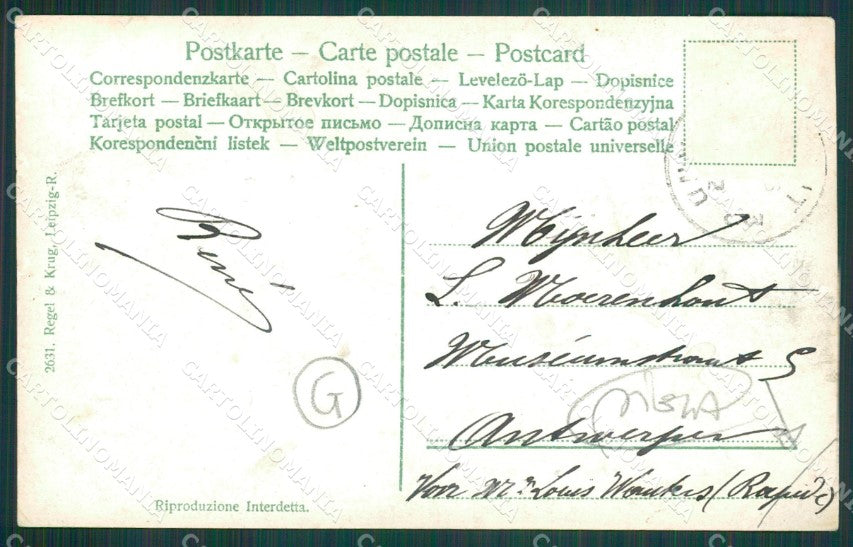 Postkarte — Carte postale — Postcard
Correspondenzkarte — Cartolina postale — Levelezö-Lap — Dopisnice
Brefkort — Briefkaart — Brevkort — Dopisnica — Karta Korespondenzyjna
Tarjeta postal — Открытое письмо — Дописна карта — Cartão postal
Korespondenční listek — Weltpostverein — Union postale universelle
2631. Regel & Krug, Leipzig-R.
René
G
Mijnheer
L. Moerenhout
Museumstraat 5
Antwerpen
Voor Mr Louis Wouters
Riproduzione Interdetta.
CARTOLINOMANIA